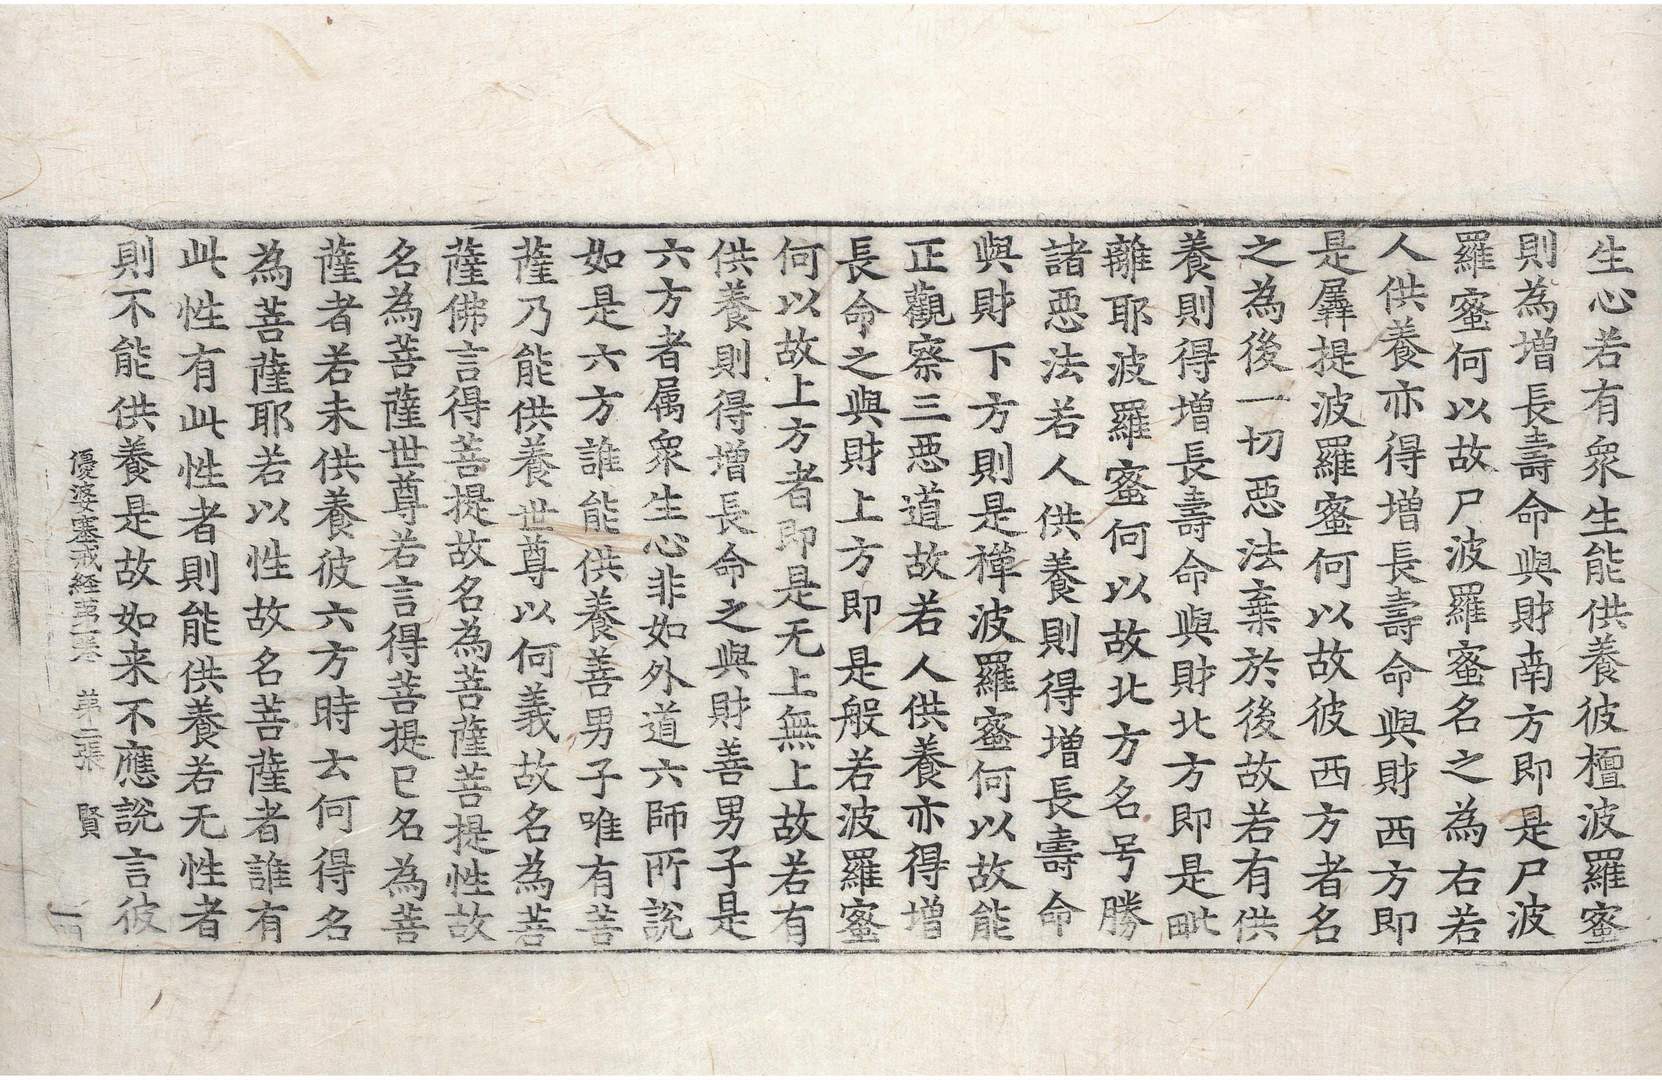 生心若有衆生能供養彼檀波羅蜜
則為增長壽命與財南方即是尸波
羅蜜何以故尸波羅蜜名之為右若
人供養亦得增長壽命與財西方即
是羼提波羅蜜何以故彼西方者名
之為後一切惡法棄於後故若有供
養則得增長壽命與財北方即是毗
離耶波羅蜜何以故北方名号勝
諸惡法若人供養則得增長壽命
與財下方則是禪波羅蜜何以故能
正觀察三惡道故若人供養亦得增
長命之與財上方即是般若波羅蜜
何以故上方者即是无上無上故若有
供養則得增長命之與財善男子是
六方者属衆生心非如外道六師所說
如是六方誰能供養善男子唯有菩
薩乃能供養世尊以何義故名為菩
薩佛言得菩提故名為菩薩菩提性故
名為菩薩世尊若言得菩提已名為菩
薩者若未供養彼六方時云何得名
為菩薩耶若以性故名菩薩者誰有
此性有此性者則能供養若无性者
則不能供養是故如来不應說言彼
優婆塞戒経第一卷 第二張 賢